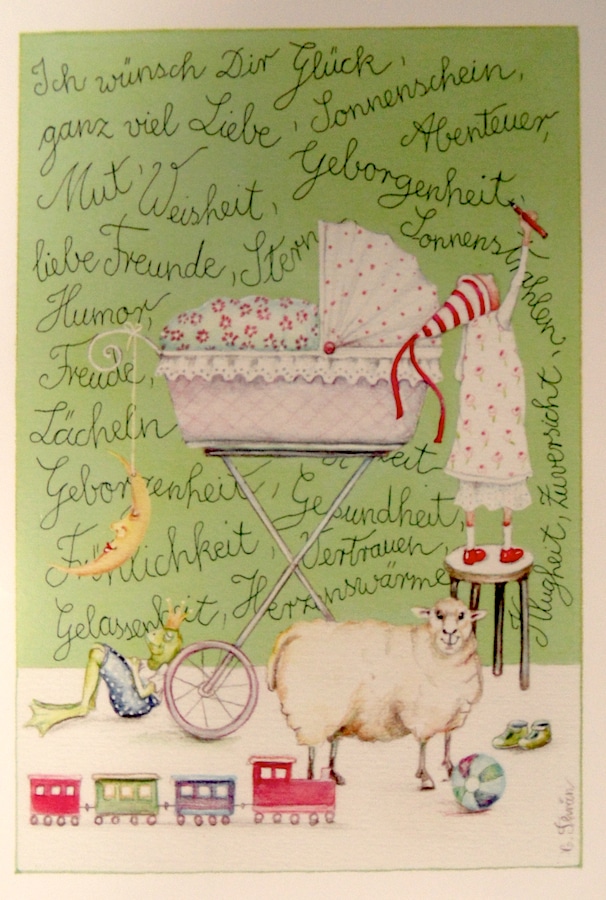 Ich wünsch Dir Glück,
ganz viel Liebe, Sonnenschein,
Abenteuer,
Mut, Weisheit, Geborgenheit,
liebe Freunde, Stern
Sonnenstrahlen,
Humor,
Freude,
Lächeln
Geborgenheit, Gesundheit,
Fröhlichkeit, Vertrauen,
Gelassenheit, Herzenswärme
Klugheit, Zuversicht,